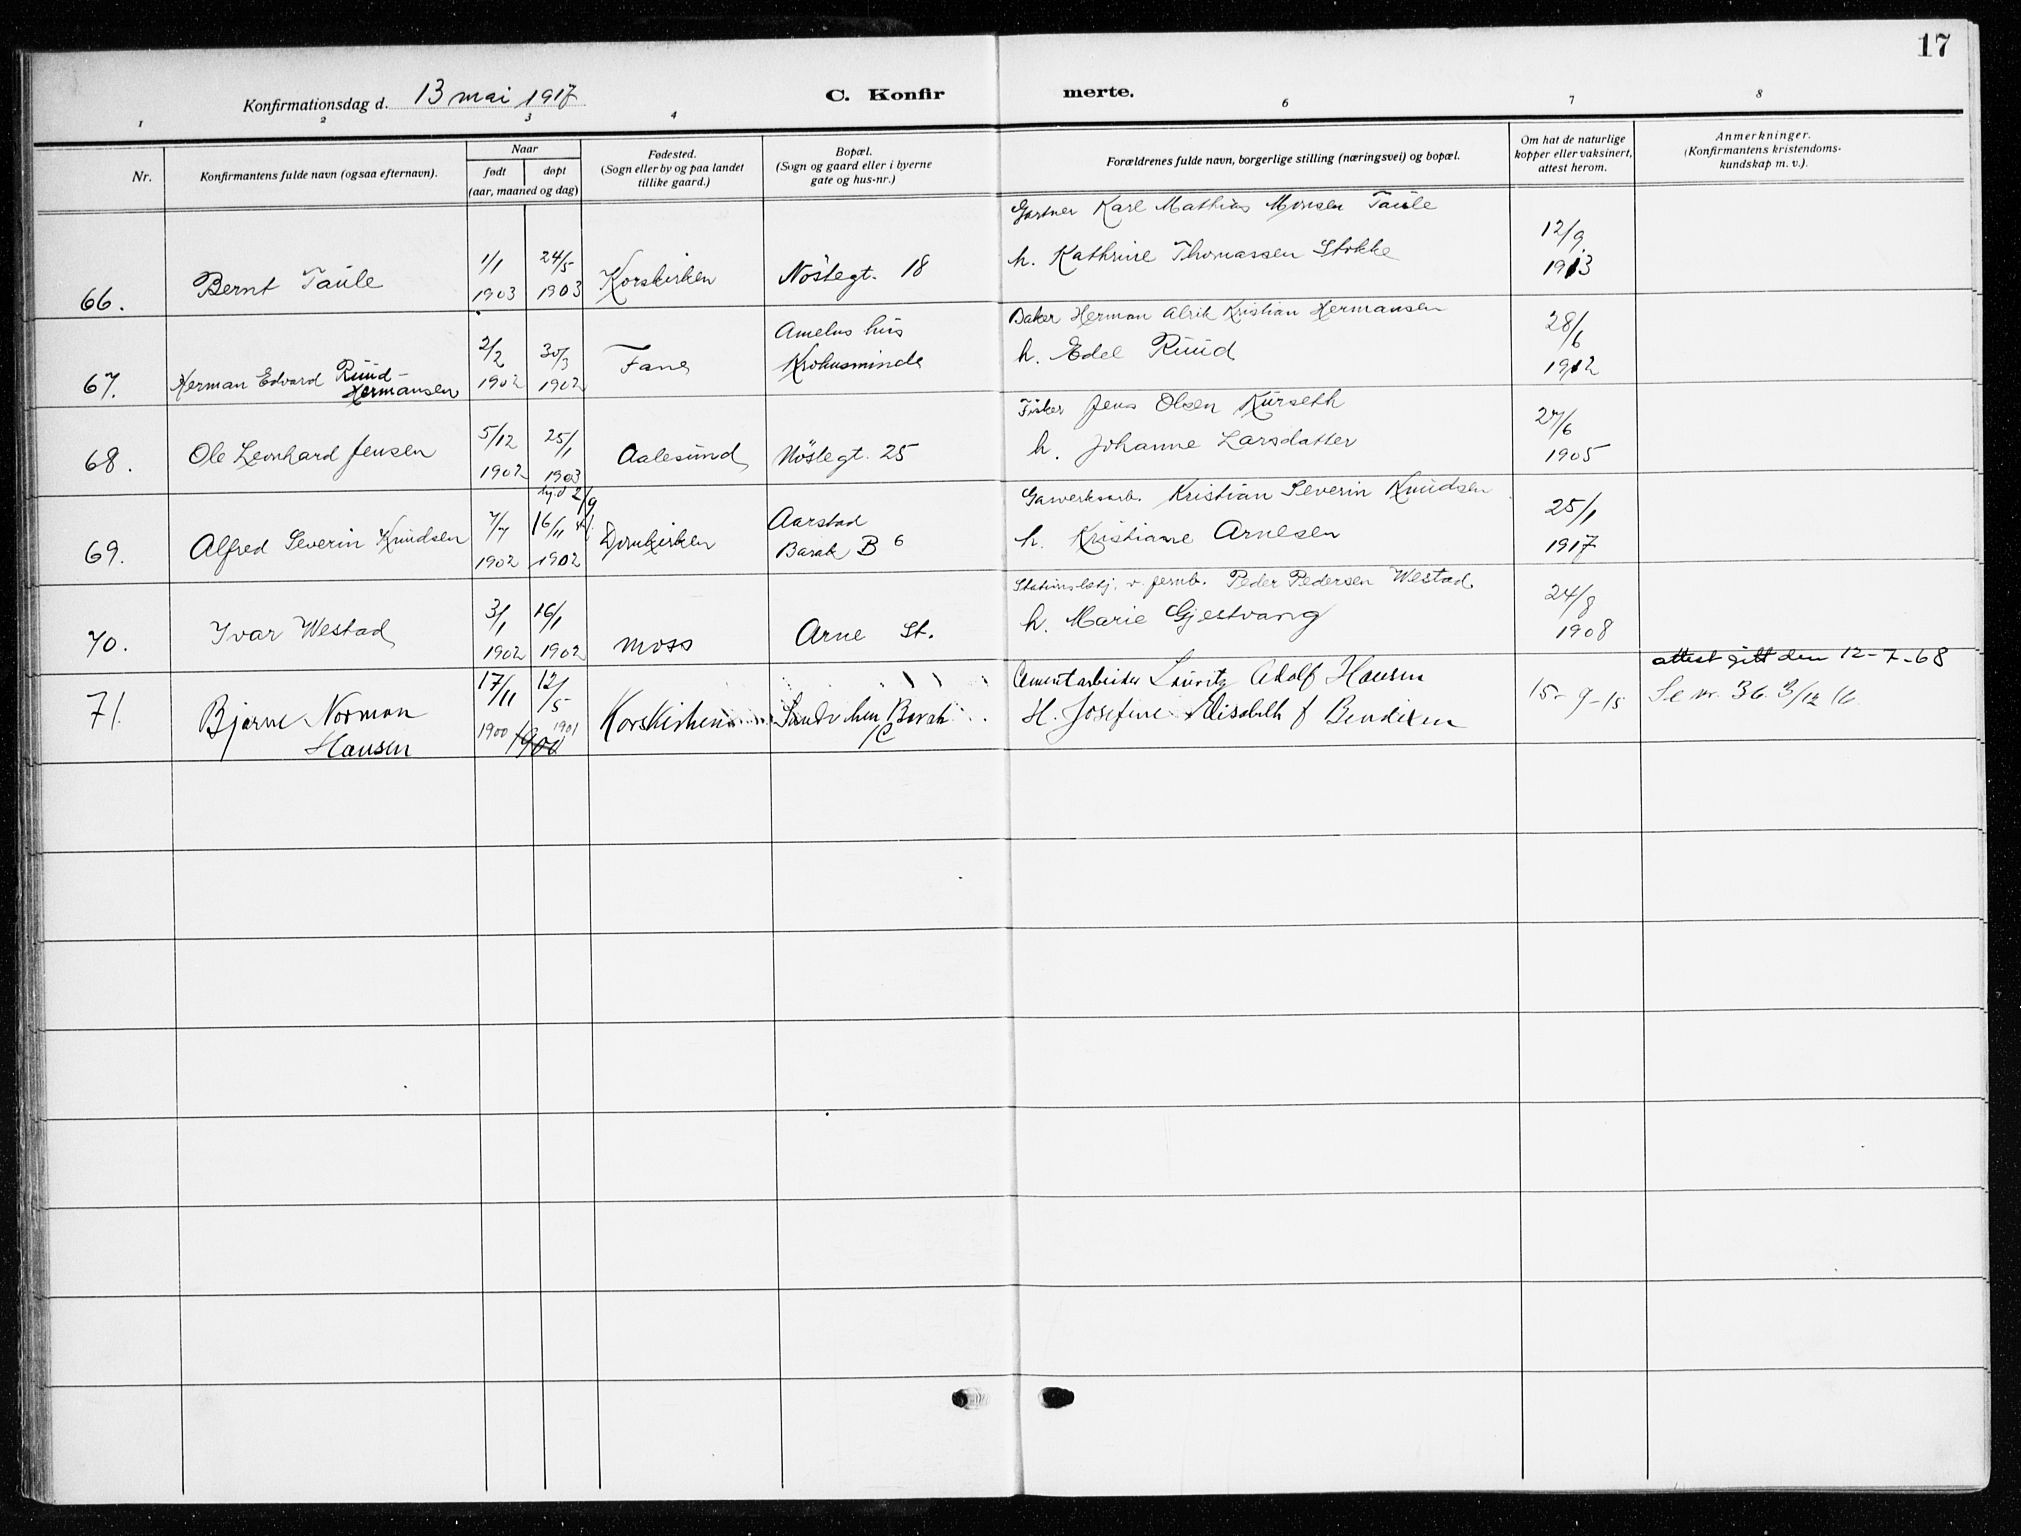 17
Konfirmationsdag d. 13 mai 1917
C. Konfirmerte.
1 2 3 4 6 7 8
Nr.
Konfirmantens fulde navn (ogsaa efternavn).
Naar
født døpt
(aar, maaned og dag)
Fødested.
(Sogn eller by og paa landet
tillike gaard.)
Bopæl.
(Sogn og gaard eller i byerne
gate og hus-nr.)
Forældrenes fulde navn, borgerlige stilling (næringsvei) og bopæl.
Om hat de naturlige
kopper eller vaksinert,
attest herom.
Anmerkninger.
(Konfirmantens kristendoms-
kundskap m. v.).
66.
Bernt Taule
1/1
1903
24/5
1903
Korskirken
Nöstegt. 18
Gartner Karl Mathias Monsen Taule
h. Kathrine Thomassen Stokke
12/9
1913
67.
Herman Edvard Ruud-
Hermansen
2/2
1902
30/3
1902
Fane
hus
Baker Herman Alrik Kristian Hermansen
h. Edel Ruud
28/6
1912
68.
Ole Leonhard Jensen
5/12
1902
25/1
1903
Aalesund
Nöstegt. 25
Fisker Jens Olsen Kurseth
h. Johanne Larsdatter
27/6
1905
69.
Alfred Severin Knudsen
7/7
1902
2/9
16/11
1902
Domkirken
Aarstad
Barak B 6
Gasverksarb. Kristian Severin Knudsen
h. Kristiane Arnesen
25/1
1917
70.
Ivar Westad
3/1
1902
16/1
1902
Moss
Arne St.
v. jernb. Peder Pedersen Westad
h. Marie Gjestvang
24/8
1908
71.
Bjarne Norman
Hansen
17/11
1900
12/5
1901
1900
Korskirken
Barak
C
Cementarbeider Lauritz Adolf Hansen
H. Josefine Elisabeth f Bendixen
15-9-15
attest gitt den 12-7-68
Se nr. 36. 3/12 16